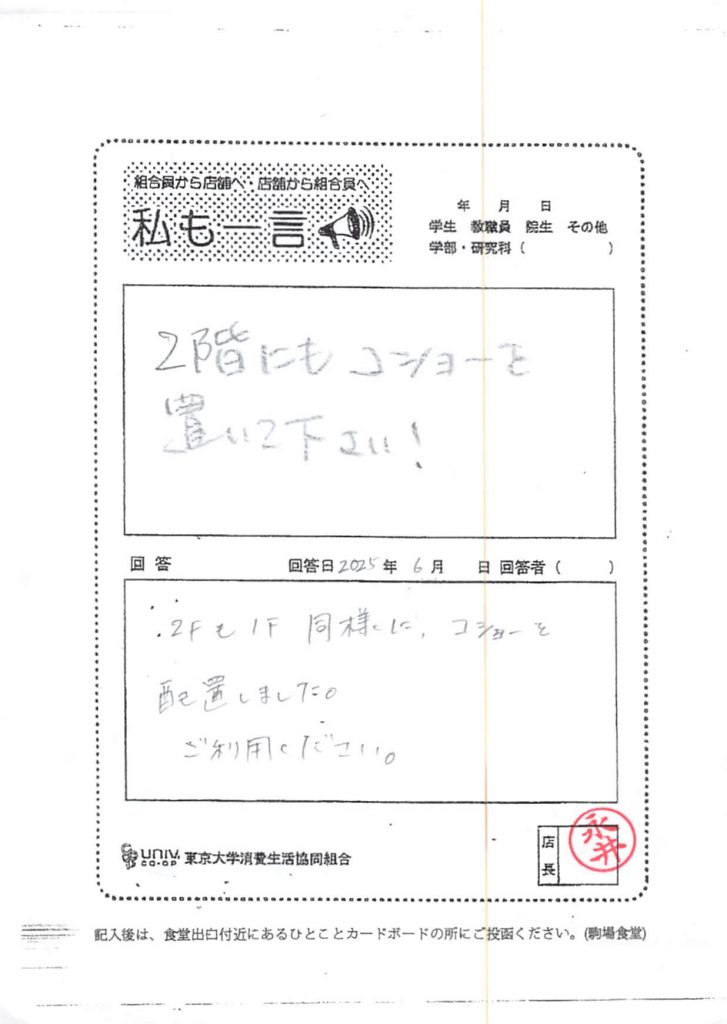 組合員から店舗へ・店舗から組合員へ
私も一言
年 月 日
学生 教職員 院生 その他
学部・研究科 ( )
2階にもコショーを
置いて下さい!
回答 回答日2025年 6月 日 回答者 ( )
2Fも1F同様に、コショーを
配置しました。
ご利用ください。
UNIV. CO-OP 東京大学消費生活協同組合
店長
永井
記入後は、食堂出口付近にあるひとことカードボードの所にご投函ください。(駒場食堂)